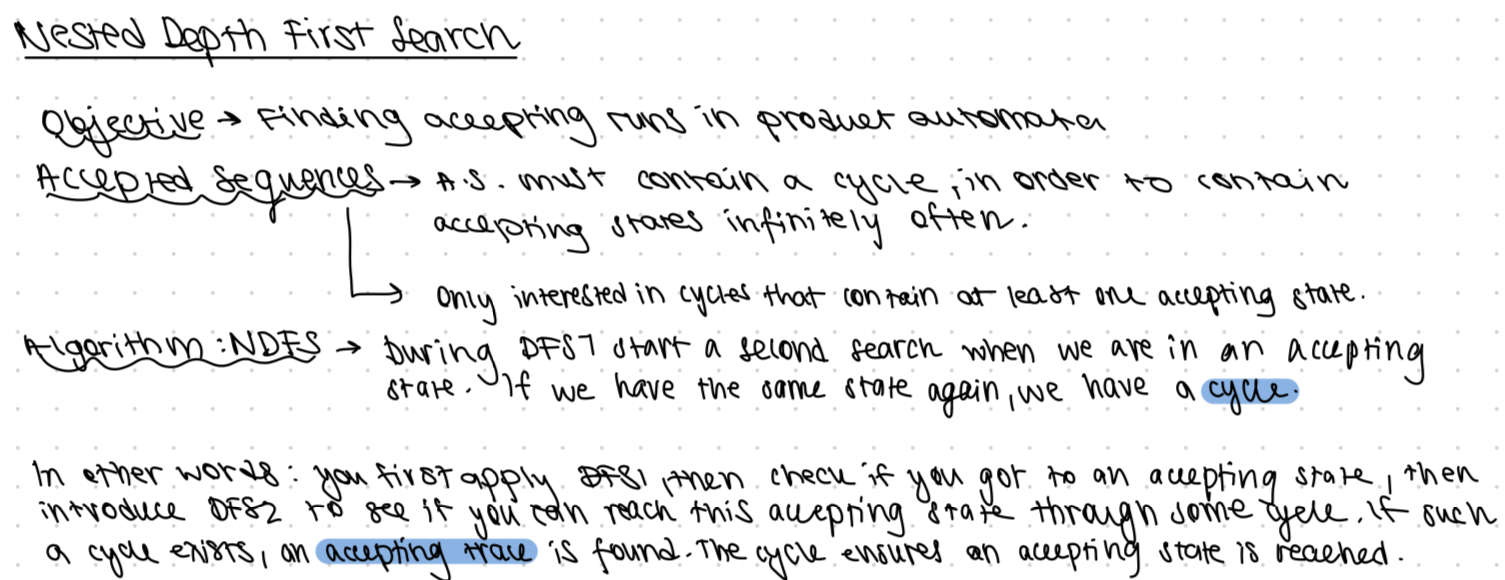 Nested Depth First Search
Objective → Finding accepting runs in product automata
Accepted Sequences → A.S. must contain a cycle, in order to contain
accepting states infinitely often.
→ Only interested in cycles that contain at least one accepting state.
Algorithm: NDFS → During DFS1 start a second search when we are in an accepting
state. If we have the same state again, we have a cycle.
In other words: you first apply DFS1, then check if you got to an accepting state, then
introduce DFS2 to see if you can reach this accepting state through some cycle. If such
a cycle exists, an accepting trace is found. The cycle ensures an accepting state is reached.